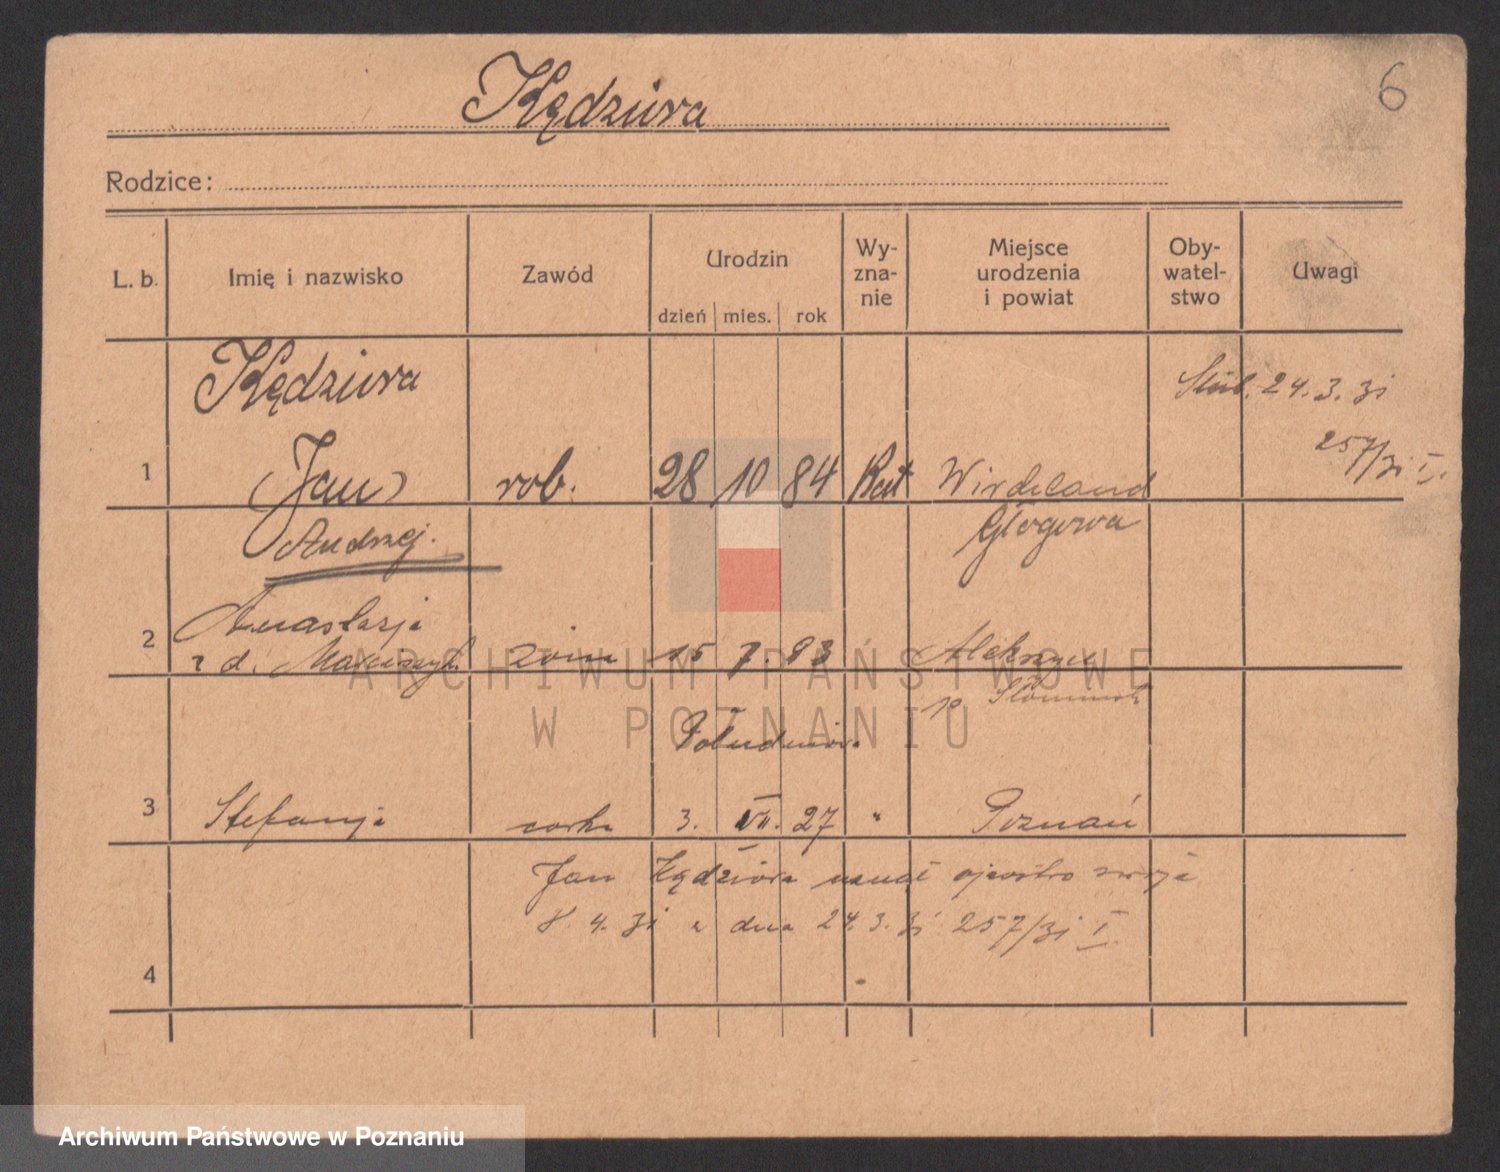 6
Kędziora
Rodzice:
L. b. Imię i nazwisko Zawód Urodzin dzień mies. rok Wy-zna-nie Miejsce urodzenia i powiat Oby-watel-stwo Uwagi
Kędziora
Ślub. 24.3.31
257/31 I.
1 (Jan) rob. 28 10 84 Kat
Andrzej. Głogowa
Anastazja
2 z d. żona 15 7. 93
p
3 Stefanja corka 3. VII. 27 " Poznań
Jan Kędziora uznał ojcostwo swoje
8. 4. 31 z dnia 24. 3. 31 257/31 I.
4
ARCHIWUM PAŃSTWOWE
W POZNANIU
Archiwum Państwowe w Poznaniu